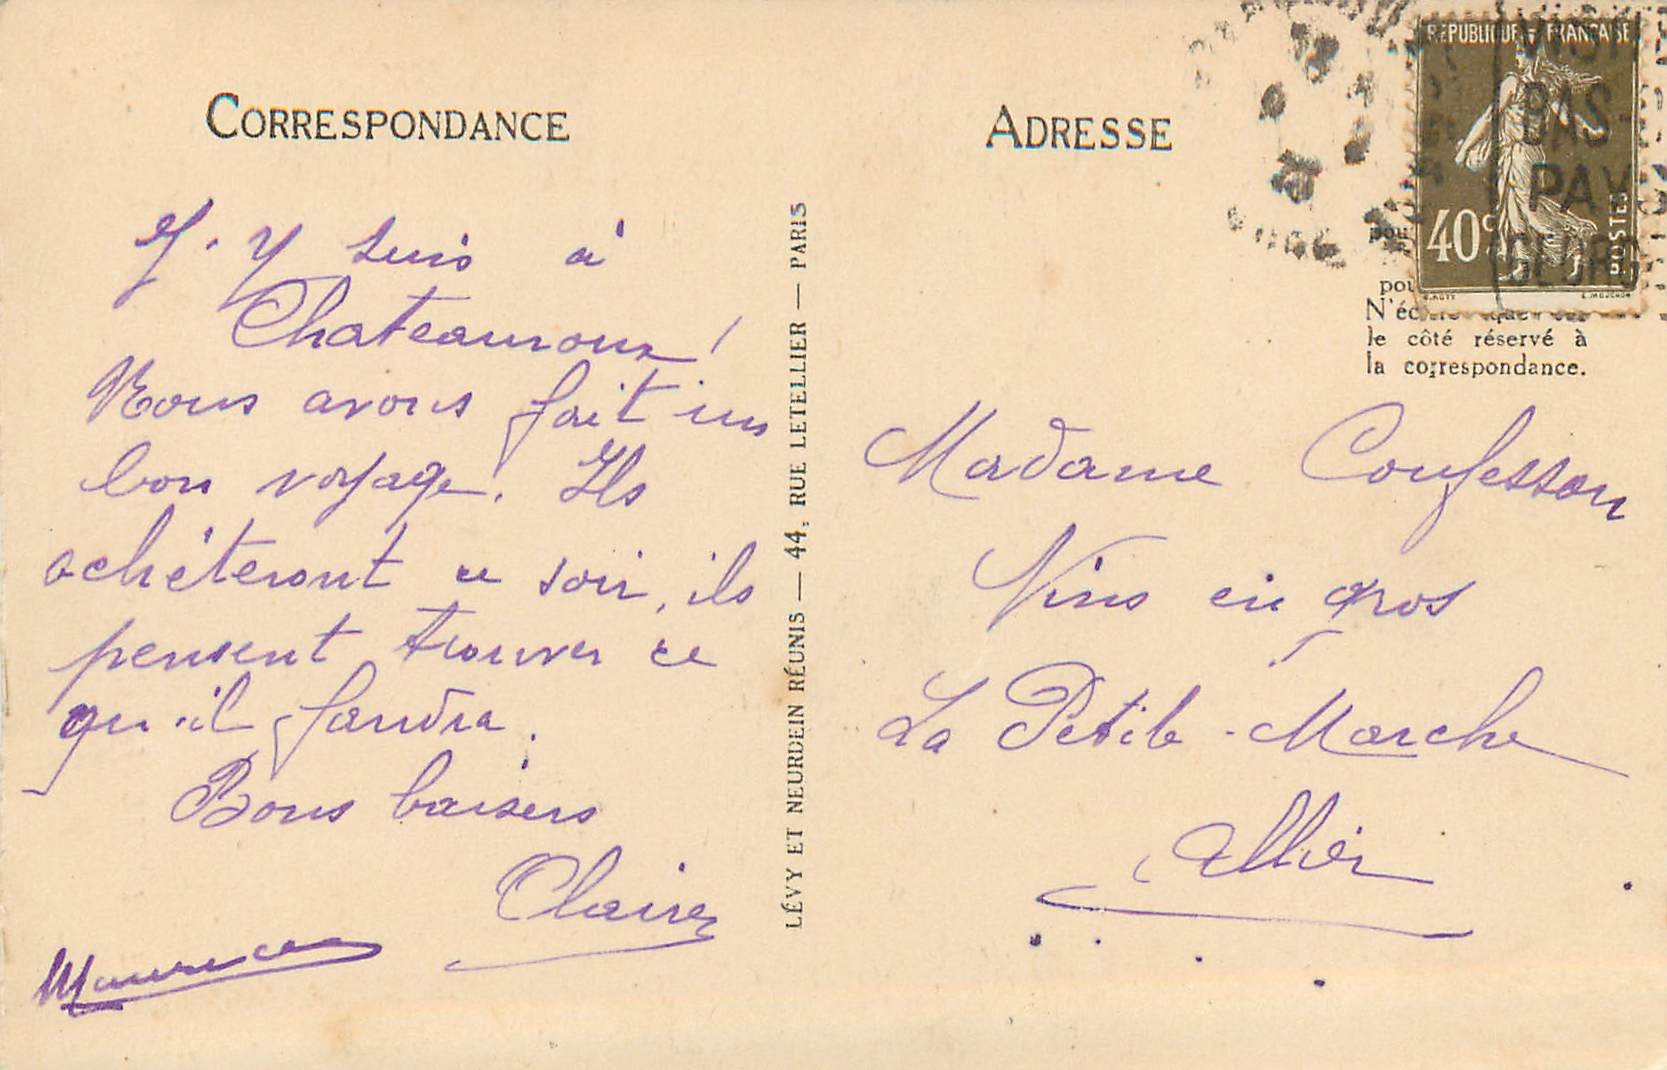 CORRESPONDANCE
J'y suis à
Chateauroux!
Nous avons fait un
bon voyage. Ils
achèteront ce soir, ils
pensent trouver ce
qu'il faudra.
Bons baisers
Claire
Maurice
LÉVY ET NEURDEIN RÉUNIS — 44, RUE LETELLIER — PARIS
ADRESSE
REPUBLIQUE FRANÇAISE
40c
POSTES
BAS-
PAY
GEORG
le côté réservé à
la correspondance.
Madame Confesson
Vins en gros
La Petite-Marche
Allier